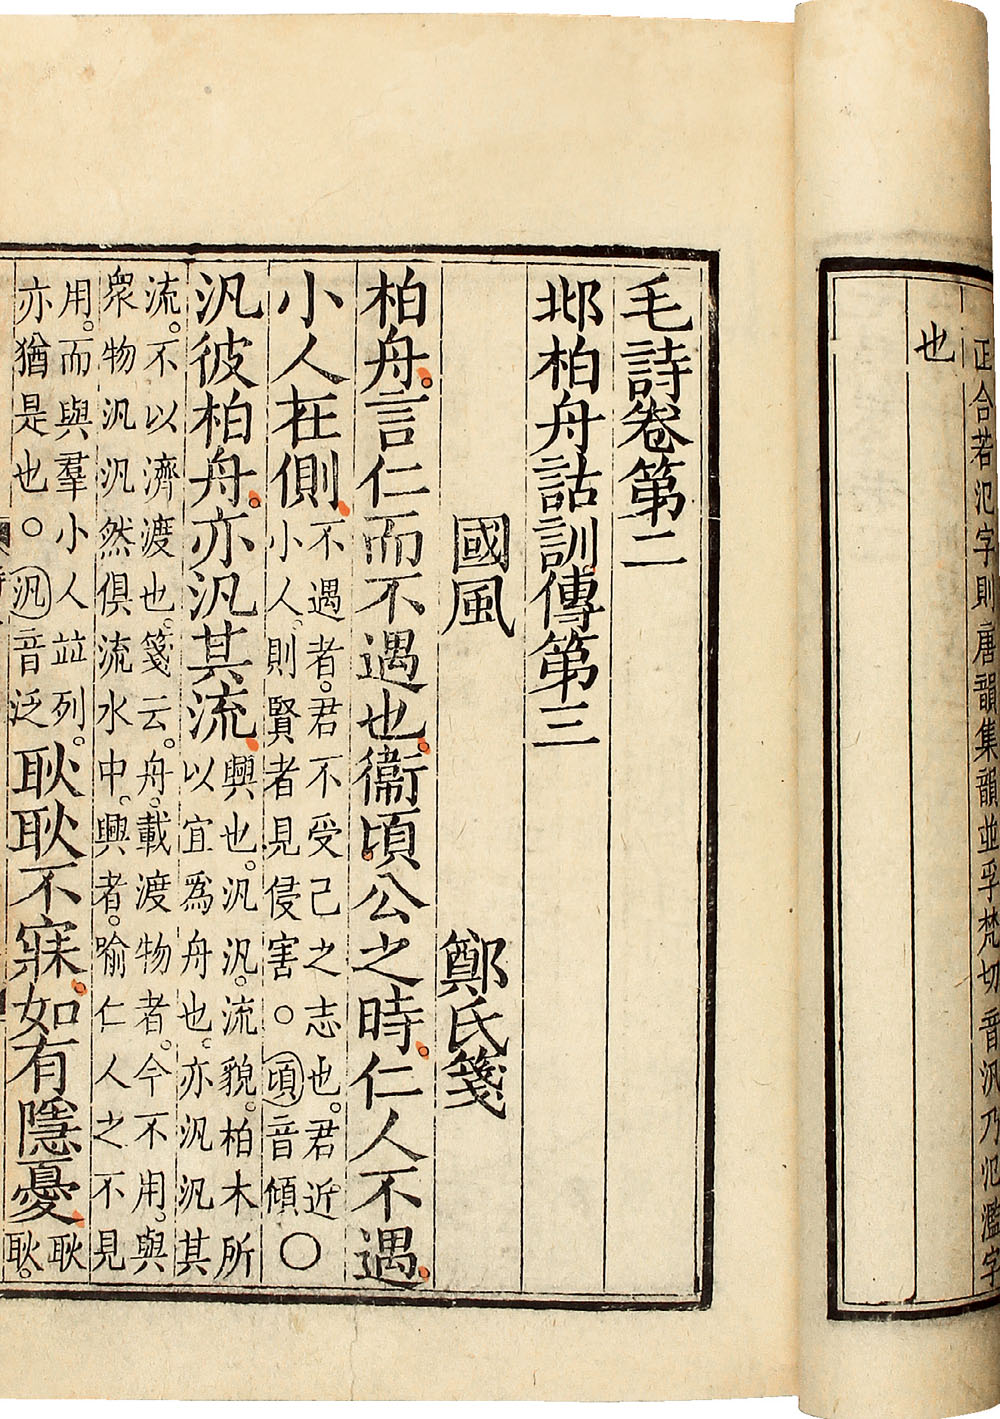 正合若氾字則唐韻集韻並孚梵切音汎乃氾濫字
也
毛詩卷第二
邶柏舟詁訓傳第三
國風　鄭氏箋
柏舟。言仁而不遇也。衞頃公之時。仁人不遇。
小人在側。
不遇者。君不受己之志也。君近
小人。則賢者見侵害。○頃音傾
○
汎彼柏舟。亦汎其流。
興也。汎汎。流貌。柏木所
以宜爲舟也。亦汎汎其
流。不以濟渡也。箋云。舟。載渡物者。今不用。與
衆物汎汎然俱流水中。興者。喻仁人之不見
用。而與羣小人竝列。
亦猶是也。○汎音泛
耿耿不寐。如有隱憂。
耿
耿。